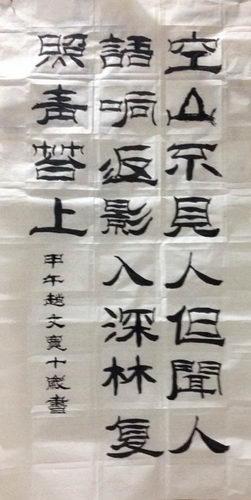 空山不見人但聞人
語响返影入深林复
照青苔上
甲午趙文寬十歲書